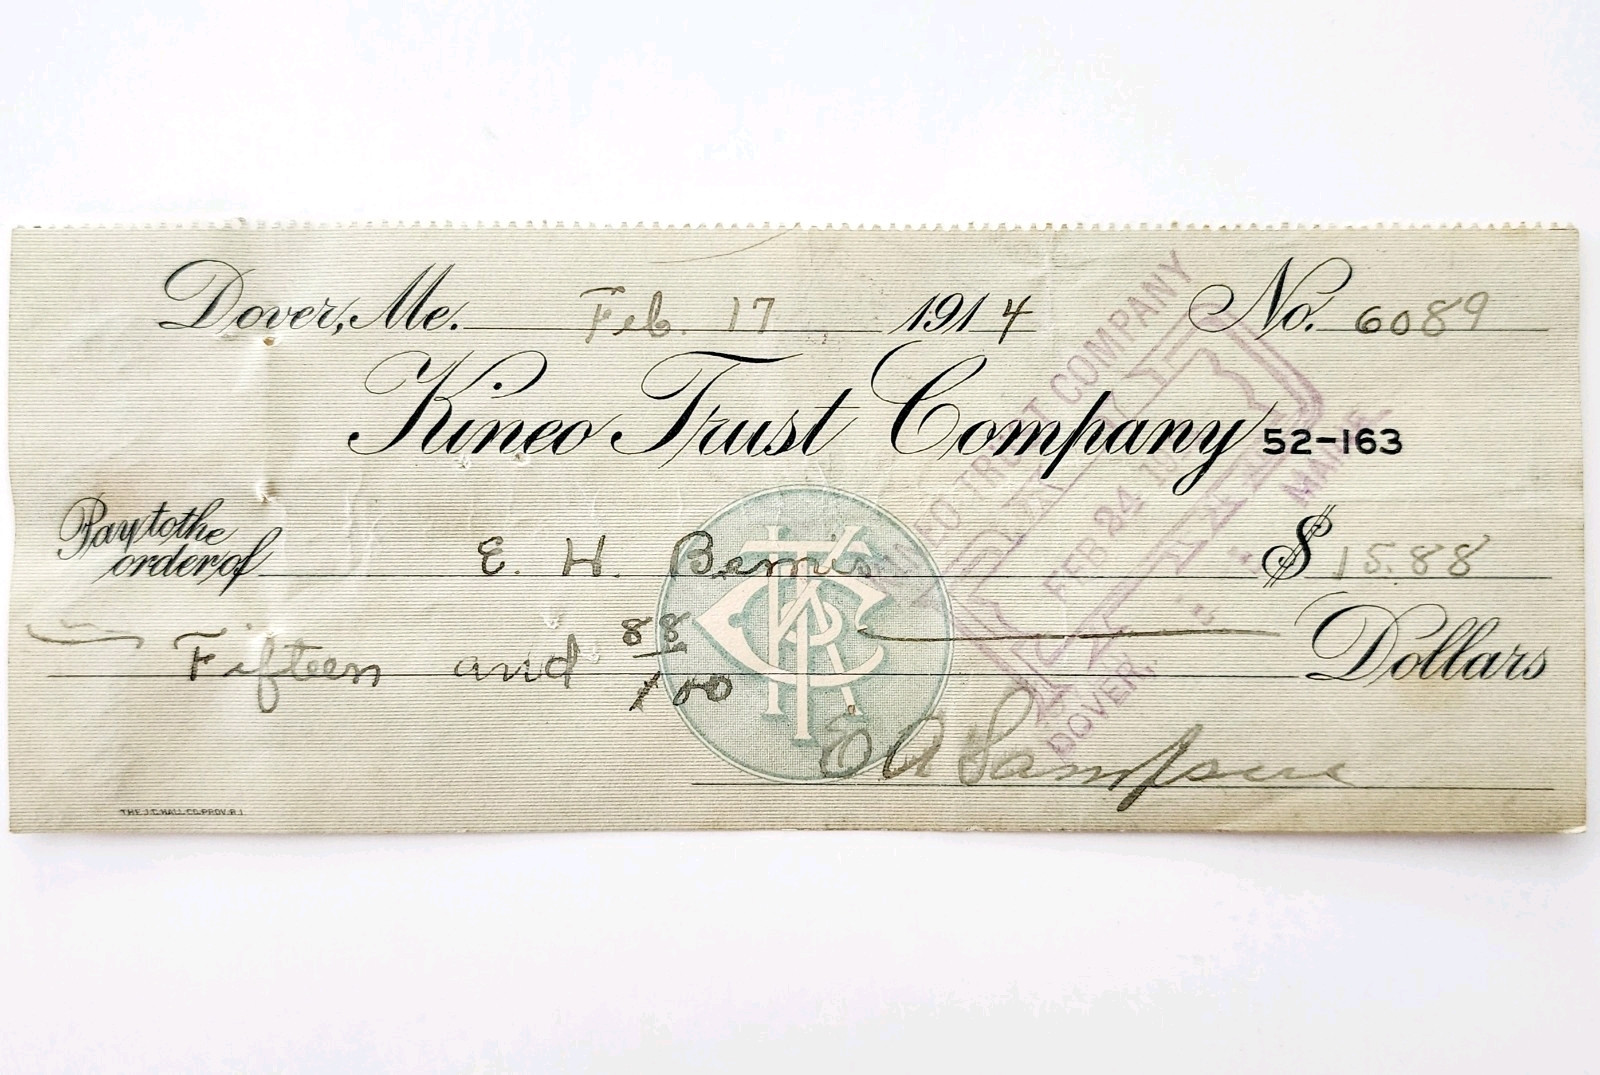 Dover, Me. Feb. 17 1914 No. 6089
Kineo Trust Company 52-163
Pay to the order of E. H. Bemis $15.88
Fifteen and 88/100 Dollars
E A Sampson
THE J.C. HALL CO. PROV. R.I.
KINEO TRUST COMPANY
PAID
FEB 24 19
DOVER, MAINE
KTC